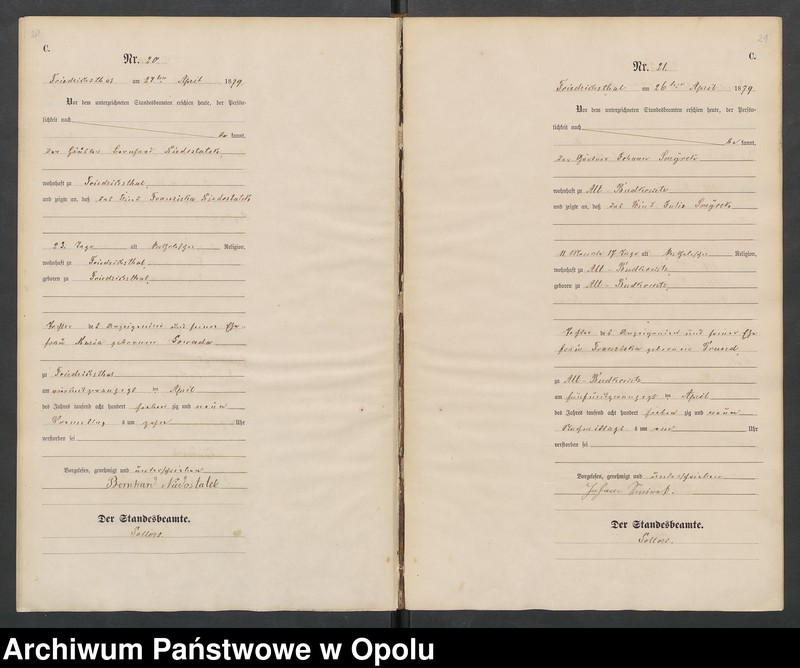 C.
Nr. 20.
Friedrichsthal am 24ten April 1879
Vor dem unterzeichneten Standesbeamten erschien heute, der Persön-
lichkeit nach
be kannt,
der Häusler Bernhard
wohnhaft zu Friedrichsthal,
und zeigte an, daß das Kind Franziska
23. Tage alt katholischer Religion,
wohnhaft zu Friedrichsthal,
geboren zu Friedrichsthal,
Tochter des Anzeigenden und seiner Ehe-
frau Maria geborenen
zu Friedrichsthal
am April
des Jahres tausend acht hundert sieben zig und neun
Vormittag s um zehn Uhr
verstorben sei
Vorgelesen, genehmigt und unterschrieben
Bernhard Niedostatek
Der Standesbeamte.
29
C.
Nr. 21.
Friedrichsthal am 26ten April 1879.
Vor dem unterzeichneten Standesbeamten erschien heute, der Persön-
lichkeit nach
be kannt,
der Gärtner Johann
wohnhaft zu Alt-Budkowitz
und zeigte an, daß das Kind Julie
11 Monate 17 Tage alt katholischer Religion,
wohnhaft zu Alt-Budkowitz
geboren zu Alt-Budkowitz
Tochter des Anzeigenden und seiner Ehe
frau Franziska geborenen
zu Alt-Budkowitz
am fünfundzwanzigst en April
des Jahres tausend acht hundert sieben zig und neun
Nachmittags s um Uhr
verstorben sei
Vorgelesen, genehmigt und unterschrieben
Johann
Der Standesbeamte.
Archiwum Państwowe w Opolu